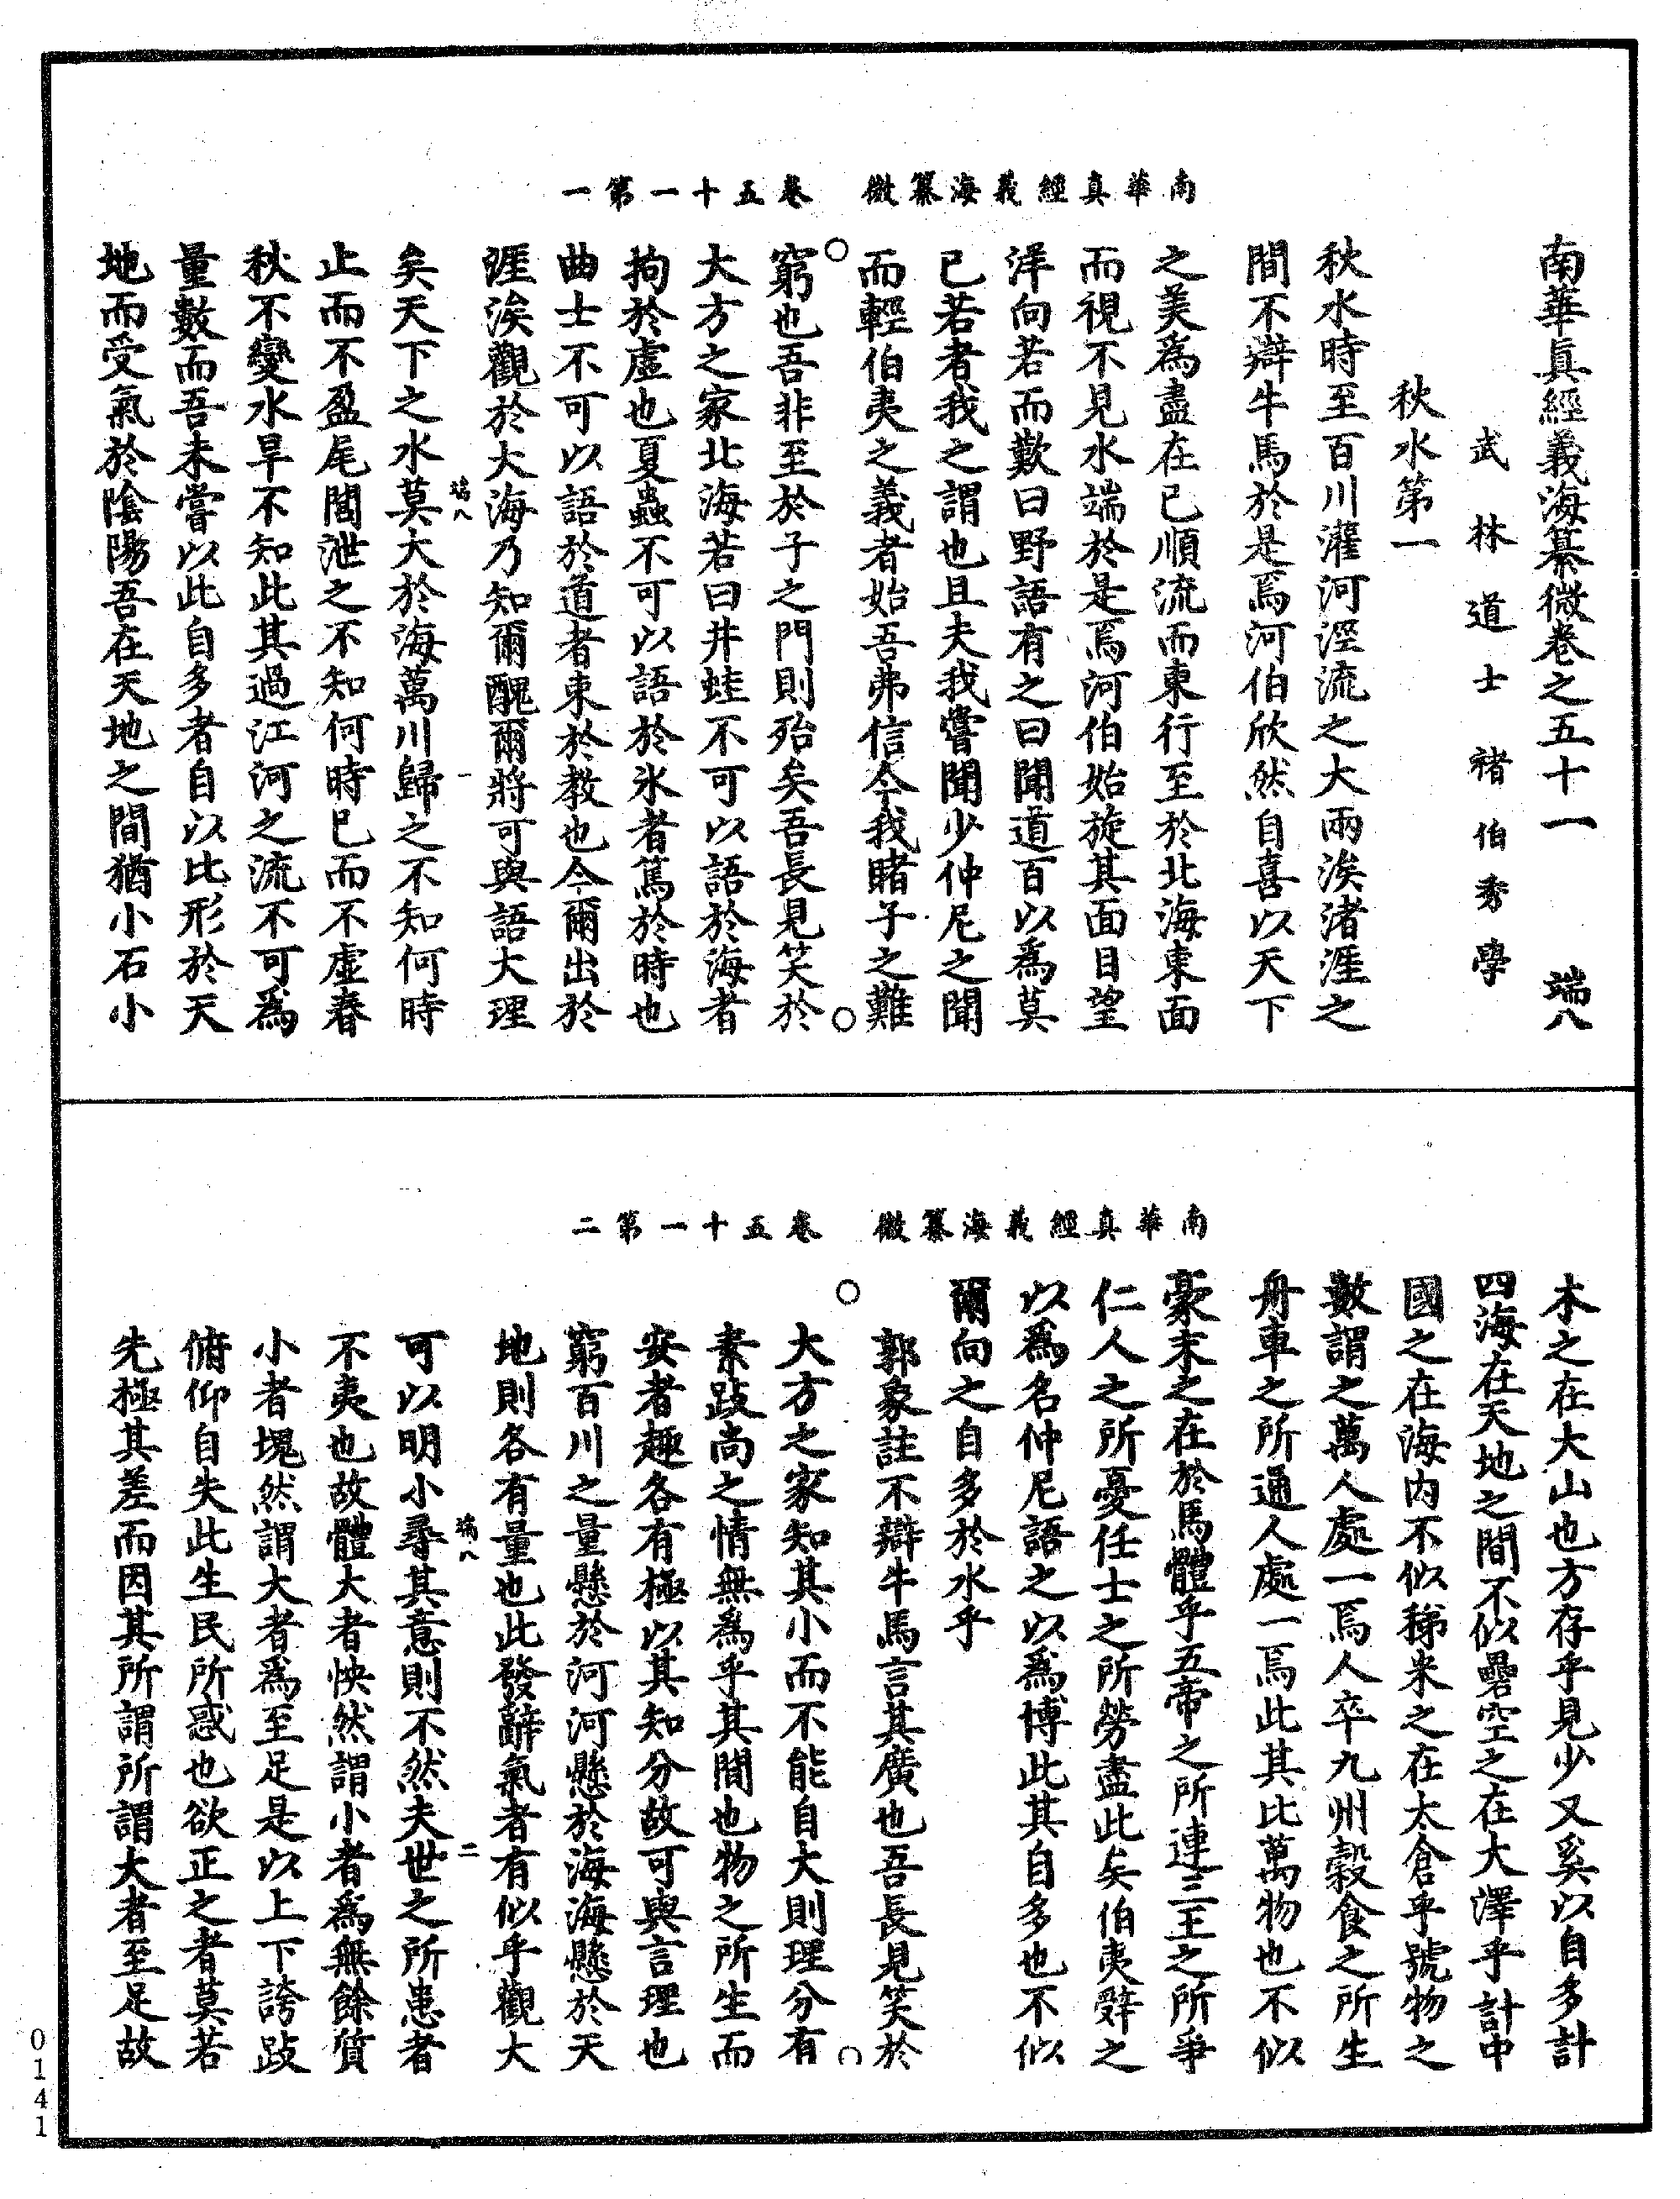 南華真經義海纂微　卷五十一第一
南華眞經義海纂微卷之五十一　端八
武林道士褚伯秀學
秋水第一
秋水時至百川灌河涇流之大兩涘渚涯之
間不辯牛馬於是焉河伯欣然自喜以天下
之美爲盡在己順流而東行至於北海東面
而視不見水端於是焉河伯始旋其面目望
洋向若而歎曰野語有之曰聞道百以爲莫
己若者我之謂也且夫我嘗聞少仲尼之聞
而輕伯夷之義者始吾弗信今我睹子之難
窮也吾非至於子之門則殆矣吾長見笑於
大方之家北海若曰井蛙不可以語於海者
拘於虛也夏蟲不可以語於氷者篤於時也
曲士不可以語於道者束於教也今爾出於
涯涘觀於大海乃知爾醜爾將可與語大理
端八　一
矣天下之水莫大於海萬川歸之不知何時
止而不盈尾閭泄之不知何時已而不虛春
秋不變水旱不知此其過江河之流不可爲
量數而吾未嘗以此自多者自以比形於天
地而受氣於陰陽吾在天地之間猶小石小
南華真經義海纂微　卷五十一第二
木之在大山也方存乎見少又奚以自多計
四海在天地之間不似礨空之在大澤乎計中
國之在海内不似稊米之在太倉乎號物之
數謂之萬人處一焉人卒九州穀食之所生
舟車之所通人處一焉此其比萬物也不似
豪末之在於馬體乎五帝之所連三王之所爭
仁人之所憂任士之所勞盡此矣伯夷辤之
以爲名仲尼語之以爲博此其自多也不似
爾向之自多於水乎
郭象註不辯牛馬言其廣也吾長見笑於
大方之家知其小而不能自大則理分有
素跂尚之情無爲乎其間也物之所生而
安者趣各有極以其知分故可與言理也
窮百川之量懸於河河懸於海海懸於天
地則各有量也此發辭氣者有似乎觀大
端八　二
可以明小尋其意則不然夫世之所患者
不夷也故體大者怏然謂小者爲無餘質
小者塊然謂大者爲至足是以上下誇跂
俯仰自失此生民所惑也欲正之者莫若
先極其差而因其所謂所謂大者至足故
0141